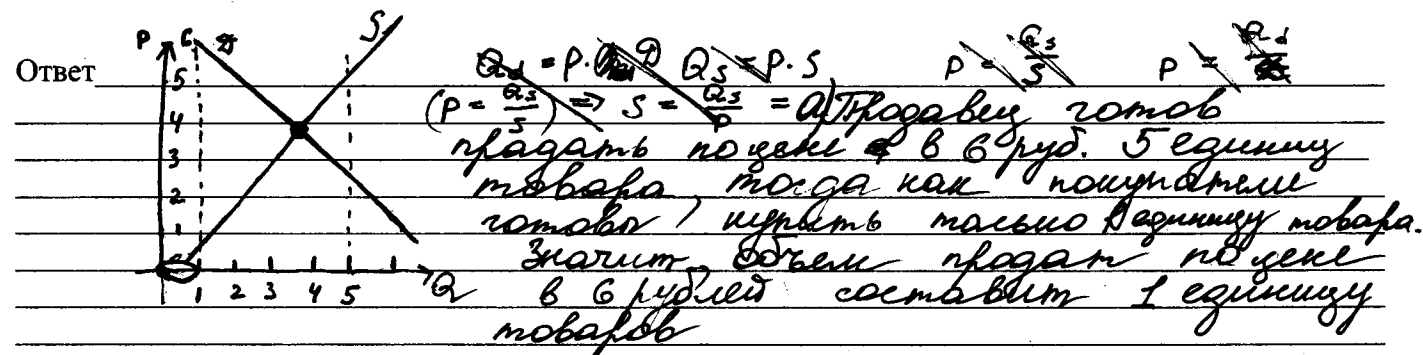 P 6 D S
Ответ
Qd = P·D Qs = P·S P = Qs/S P = Qd
5 (P = Qs/S) => S = Qs/P = а) Продавец готов
4 продать по цене в 6 руб. 5 единиц
3 товара, тогда как покупатели
2 готовы купить только 1 единицу товара.
1 Значит, объем продаж по цене
0 1 2 3 4 5 Q в 6 рублей составит 1 единицу
товаров